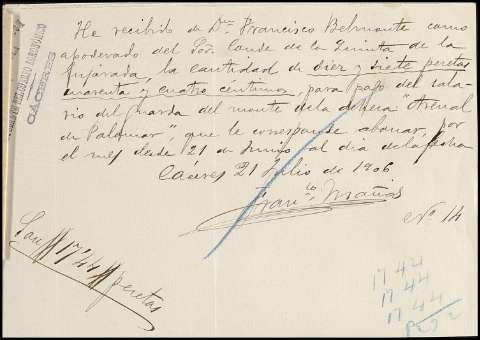 He recibido de Dn. Francisco Belmonte como
apoderado del Sor. Conde de la Quinta de la
Enjarada, la cantidad de diez y siete pesetas
cuarenta y cuatro centimos, para pago del sala-
rio del guarda del monte de la dehesa "Arenal
de Palomar", que le corresponde abonar, por
el mes desde 121 de Junio al día de la fecha
Cáceres 21 Julio de 1906
Franco. Mañas
No 14
Son # 17'44 # pesetas
17 44
17 44
17 44
CÁCERES